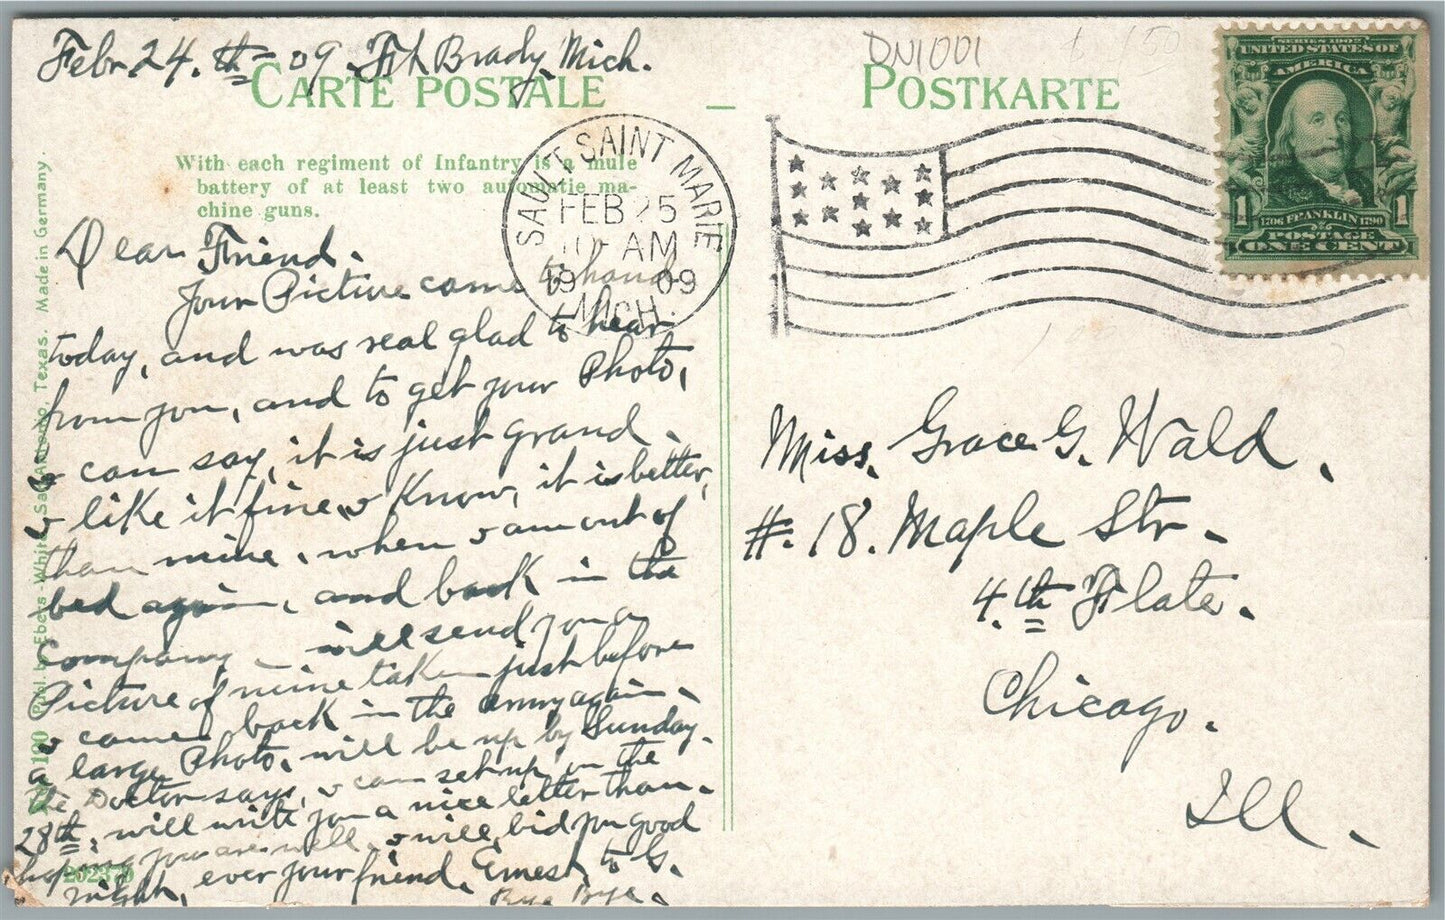 Febr. 24.th-09. Ft Brady, Mich.
CARTE POSTALE – POSTKARTE
DN1001
With each regiment of Infantry is a mule
battery of at least two automatic ma-
chine guns.
Dear Friend.
Your Picture came to hand
today, and was real glad to hear
from you, and to get your Photo,
I can say, it is just grand.
I like it fine, I Know, it is better,
than mine, when I am out of
bed again, and back in the
Company, – will send you a
Picture of mine taken just before
I came back in the army again.
a large Photo, will be up by Sunday.
the Doctor says, I can set up, on the
28th, will write you a nice letter than.
hoping you are well. I will bid you good
night, ever your friend. Ernest, to G.
Bye Bye.
Publ. by Ebers-White, San Antonio, Texas. Made in Germany.
SAULT SAINT MARIE
FEB 25
AM
1909
MICH.
SERIES 1902
UNITED STATES OF
AMERICA
1 1706 FRANKLIN 1790 1
POSTAGE
ONE CENT
Miss. Grace G. Wald.
#. 18. Maple Str.
4.th Flate.
Chicago.
Ill.